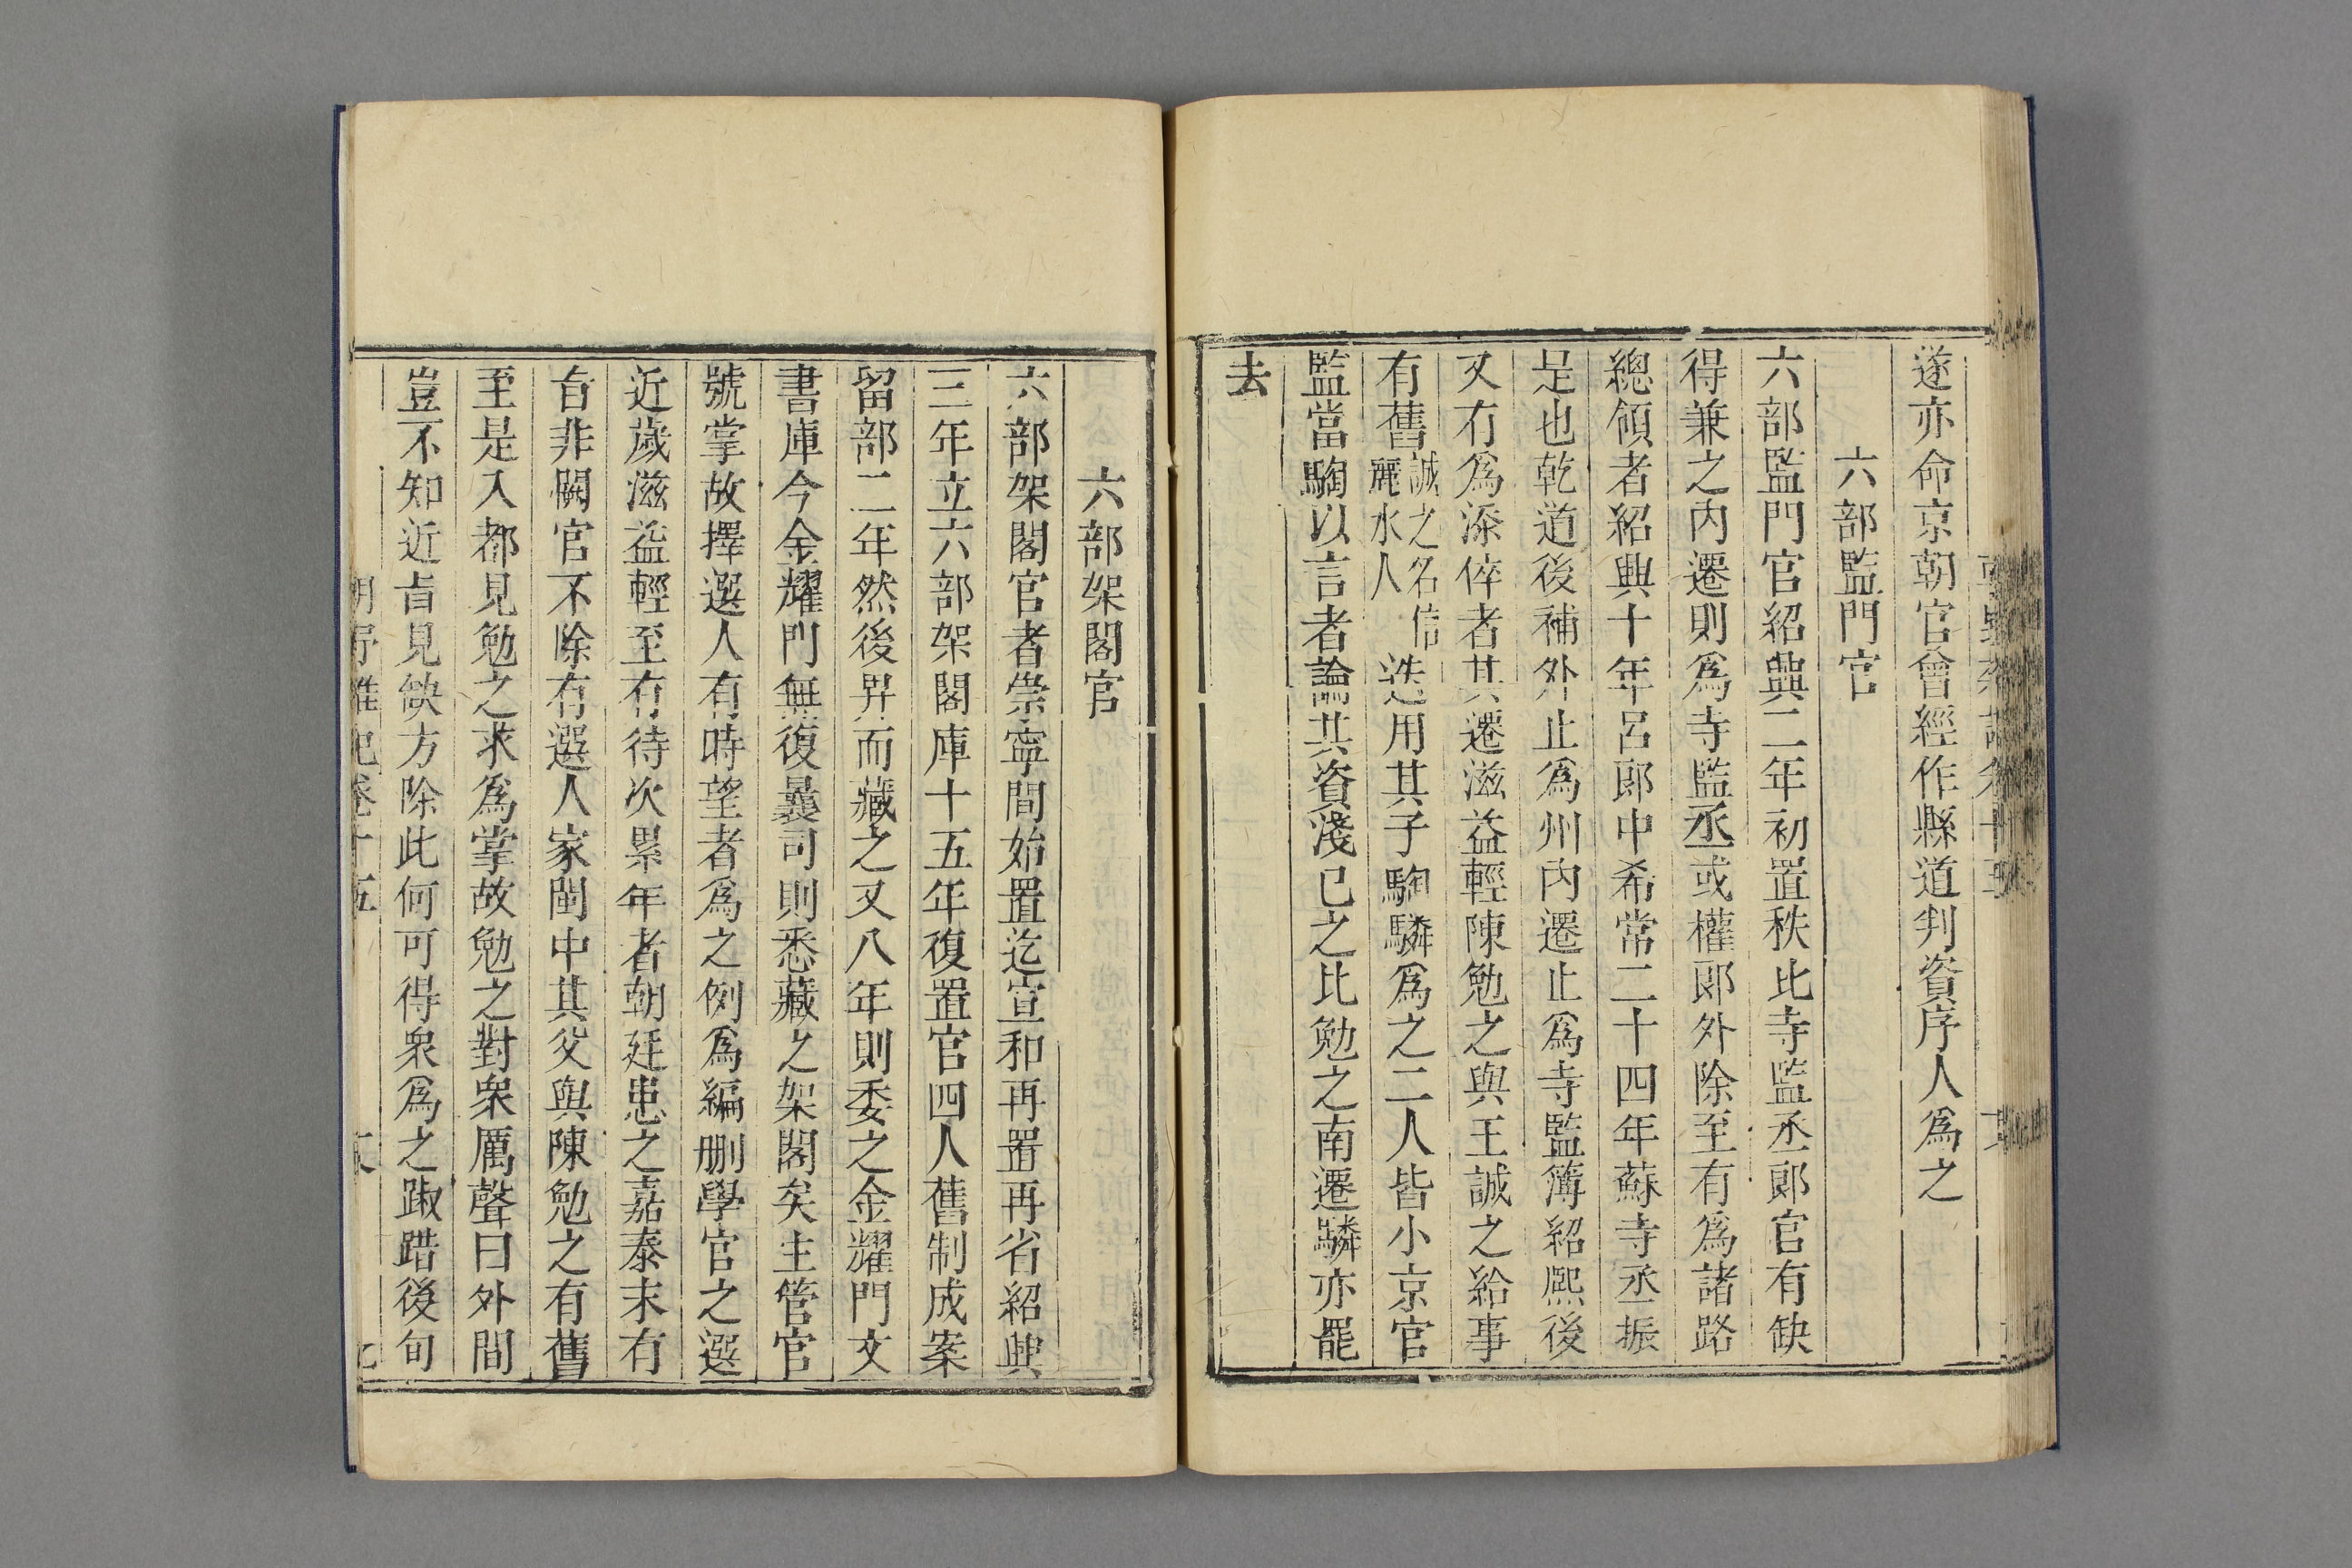 遂亦命京朝官曾經作縣道判資序人爲之
六部監門官
六部監門官紹興二年初置秩比寺監丞郎官有缺
得兼之內遷則爲寺監丞或權郎外除至有爲諸路
總領者紹興十年呂郎中希常二十四年蘇寺丞振
足也乾道後補外止爲州內遷止爲寺監簿紹熙後
又有爲添倅者其遷滋益輕陳勉之與王誠之給事
有舊誠之名信麗水人迭用其子騊驎爲之二人皆小京官
監當騊以言者論其資淺已之比勉之南遷驎亦罷
去
六部架閣官
六部架閣官者崇寧間始置迄宣和再置再省紹興
三年立六部架閣庫十五年復置官四人舊制成案
留部二年然後畀而藏之又八年則委之金耀門文
書庫今金耀門無復曩司則悉藏之架閣矣主管官
號掌故擇選人有時望者爲之例爲編刪學官之選
近歲滋益輕至有待次累年者朝廷患之嘉泰末有
旨非闕官不除有選人家閩中其父與陳勉之有舊
至是入都見勉之求爲掌故勉之對衆厲聲曰外間
豈不知近旨見缺方除此何可得衆爲之踧踖後旬